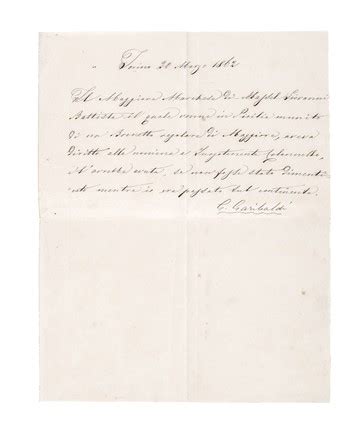 Torino 22 Marzo 1862
Il Maggiore Marchese Di Giovanni
Battista il quale venne in Sicilia munito
di un Brevetto regolare di Maggiore, aveva
diritto alla nomina di Luogotenente Colonnello,
e l'avrebbe avuta, se non fosse stato dimenti-
cato mentre io era passato sul continente.
G. Garibaldi